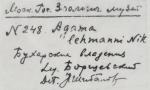 Моск. Гос. Зоологич. музей
N 248. Agama
lehmanni Nik
Бухарские владения
Д. Жигалов